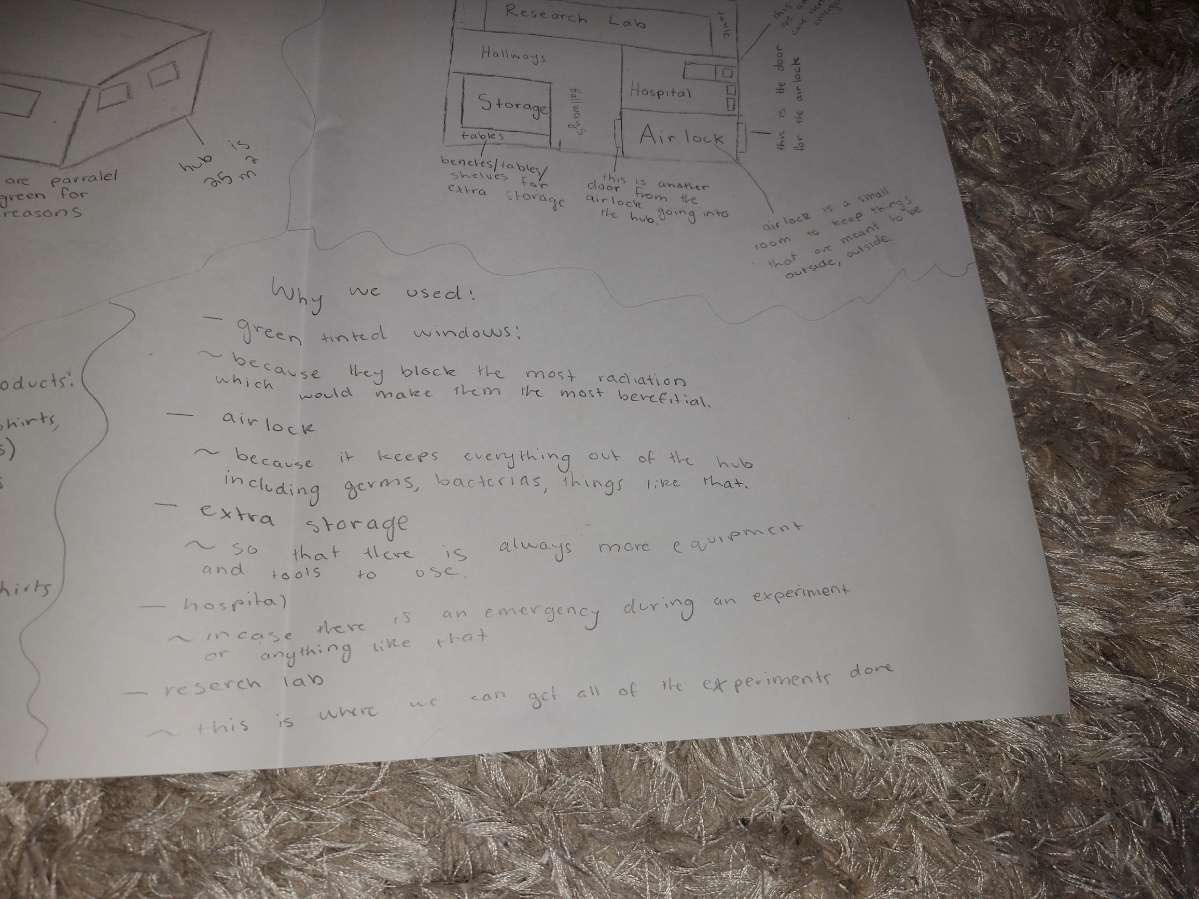 Research Lab
Hallways
Hospital
Storage
hallways
Air lock
tables
benches/tables/
shelves for
extra storage
this is another
door from the
airlock going into
the hub.
this is the door
for the airlock
air lock is a small
room to keep things
that are meant to be
outside, outside.
hub is
25 m2
are parralel
green for
reasons
oducts:
hirts,
s)
s
hirts
Why we used:
- green tinted windows:
~ because they block the most radiation
which would make them the most benefitial.
- airlock
~ because it keeps everything out of the hub
including germs, bacterias, things like that.
- extra storage
~ so that there is always more equipment
and tools to use.
- hospital
~ incase there is an emergency during an experiment
or anything like that
- reserch lab
~ this is where we can get all of the experiments done